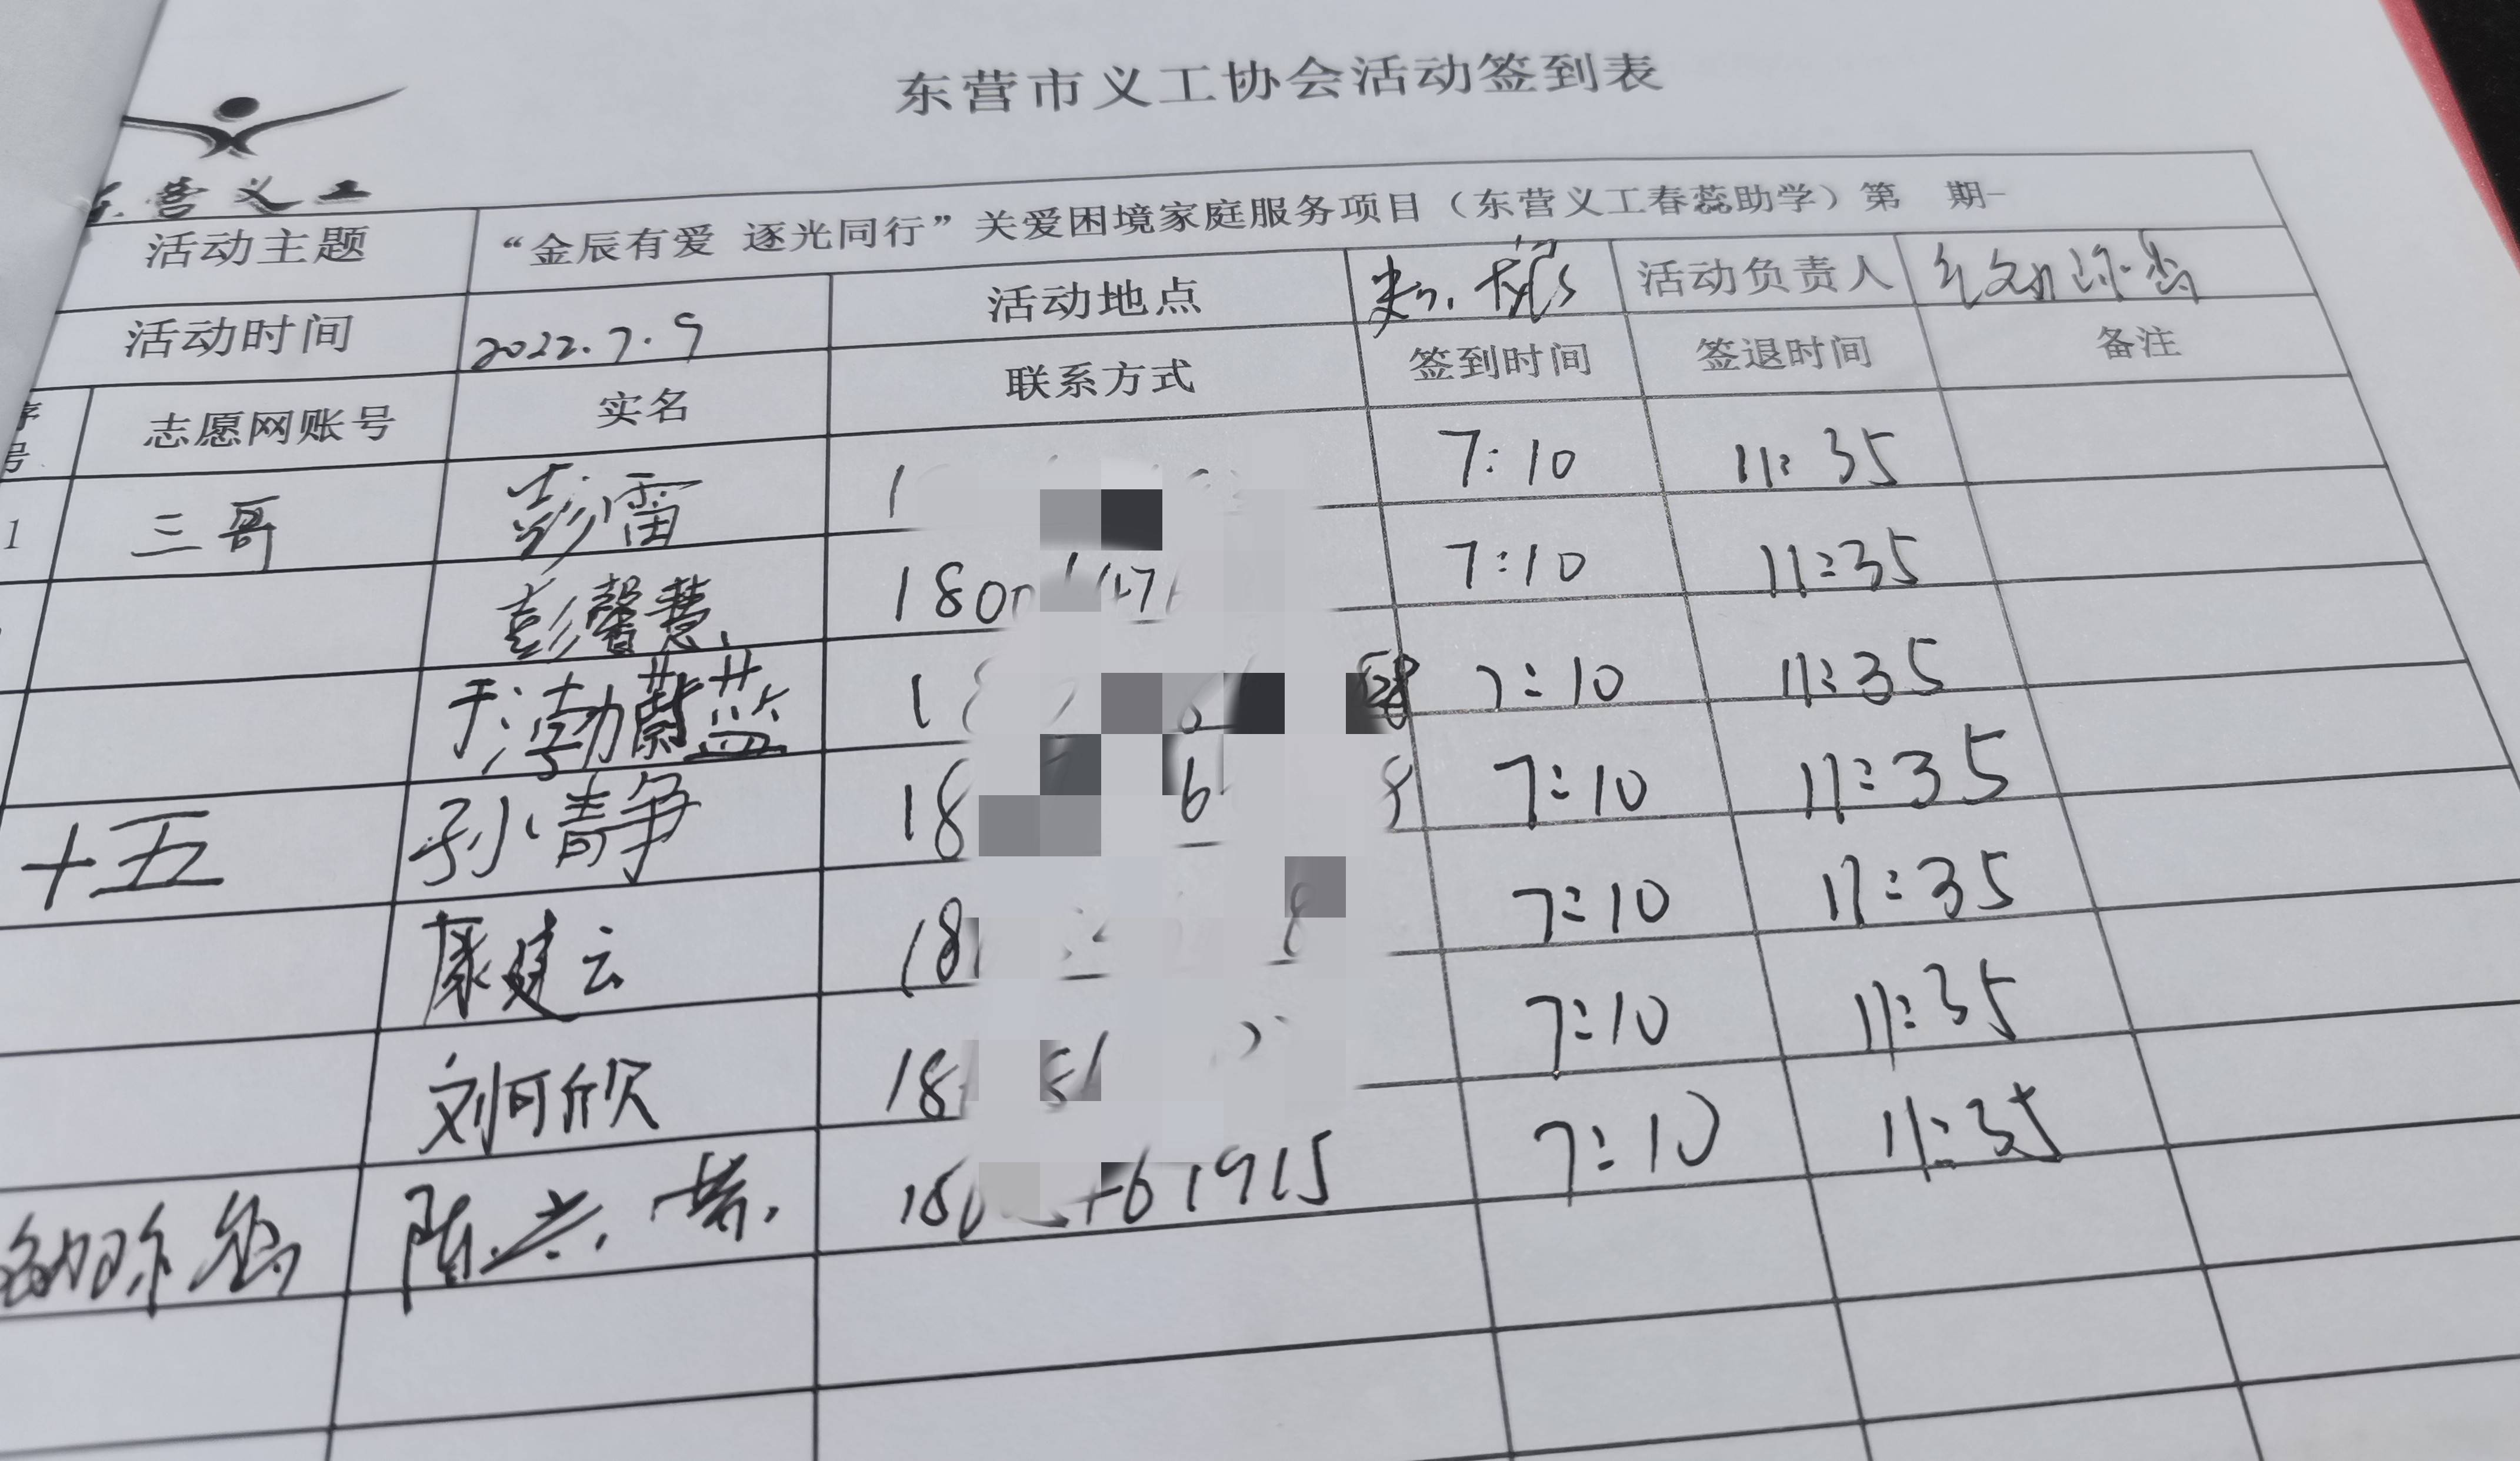 东营市义工协会活动签到表
东营义工
活动主题 “金辰有爱 逐光同行”关爱困境家庭服务项目（东营义工春蕊助学）第 期-
活动时间 2022.7.9 活动地点 活动负责人
序号 志愿网账号 实名 联系方式 签到时间 签退时间 备注
1 三哥 彭雷 1 7:10 11:35
彭馨慧 180 7:10 11:35
于渤蔚蓝 1 7:10 11:35
十五 孙静 18 6 8 7:10 11:35
康建云 18 8 7:10 11:35
刘可欣 18 7:10 11:35
陈 18 61915 7:10 11:35